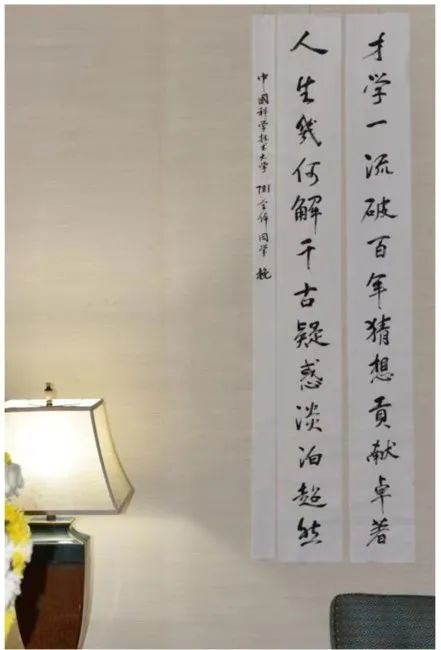 才学一流破百年猜想贡献卓著
人生几何解千古疑惑淡泊超然
中国科学技术大学 781全体同学 挽